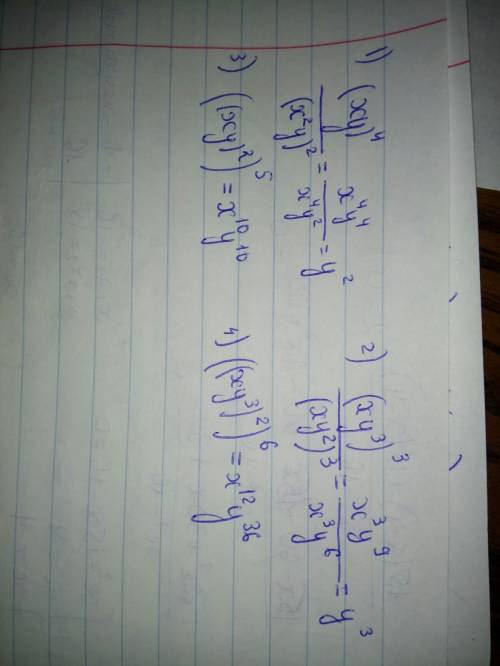 1) (xy)^4/(x^2y)^2 = x^4y^4/x^4y^2 = y^2
2) (xy^3)^3/(xy^2)^3 = x^3y^9/x^3y^6 = y^3
3) ((xy)^2)^5 = x^10y^10
4) ((xy^3)^2)^6 = x^12y^36